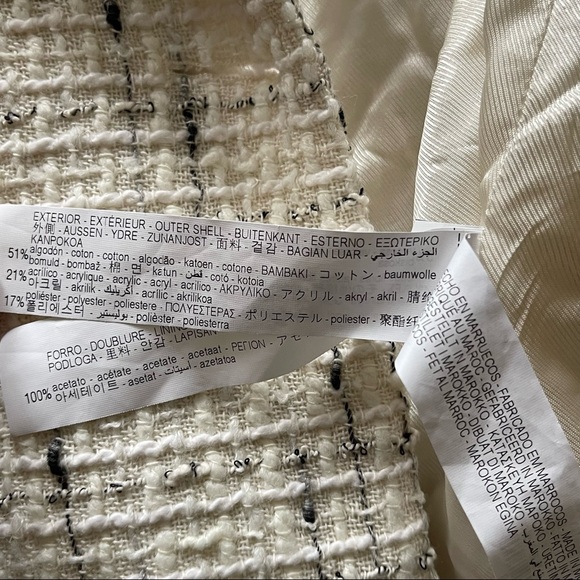 EXTERIOR - EXTÉRIEUR - OUTER SHELL - BUITENKANT - ESTERNO - ΕΞΩΤΕΡΙΚΟ
外側 - AUSSEN - YDRE - ZUNANJOST - 面料 - 겉감 - BAGIAN LUAR - الجزء الخارجي
KANPOKOA
51% algodón - coton - cotton - algodão - katoen - cotone - ΒΑΜΒΑΚΙ - コットン - baumwolle
bomuld - bombaž - 棉 - 면 - katun - قطن - cotó - kotoia
21% acrílico - acrylique - acrylic - acrílico - ΑΚΡΥΛΙΚΟ - アクリル - akryl - akril - 腈纶
아크릴 - akrilik - أكريليك - acrílic - akrilikoa
17% poliéster - polyester - poliestere - ΠΟΛΥΕΣΤΕΡΑΣ - ポリエステル - poliester - 聚酯纤
폴리에스터 - بوليستير - polièster - poliesterra
FORRO - DOUBLURE - LINING
PODLOGA - 里料 - 안감 - LAPISAN
100% acetato - acétate - acetate - acetaat - ΡΕΓΙΟΝ -
아세테이트 - asetat - أسيتات - azetatoa
EN MARRUECOS - FABRICADO EM MARROCOS - MADE
MAROC - GEFABRICEERD IN MAROKKO - FATTO
IN MAROKKO - ΚΑΤΑΣΚΕΥΗ ΜΑΡΟΚΟ -
- FET AL MARROC - MAROKON EGINA